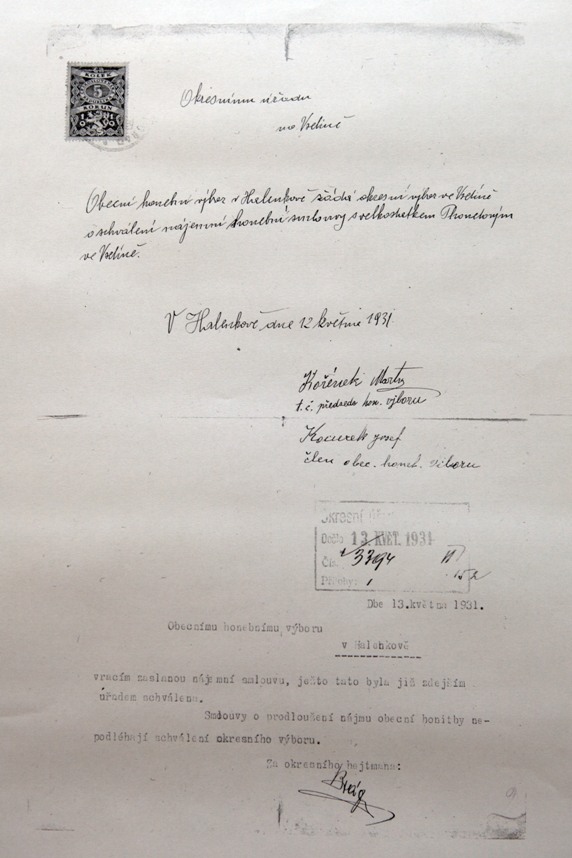 KOLEK
5
KORUN
Okresnímu úřadu
ve Vsetíně
Obecní honební výbor v Halenkově žádá okresní výbor ve Vsetíně
o schválení nájemní honební smlouvy s velkostatkem Thonetovým
ve Vsetíně.
V Halenkově dne 12 května 1931.
Kořének Martin
t. č. předseda hon. výboru
Kocurek Josef
člen obec. honeb. viboru
Okresní
Došlo 13. KVĚT. 1931
Čís. 3394
Přílohy: 1
Dne 13.května 1931.
Obecnímu honebnímu výboru
v Halenkově
vracím zaslanou nájemní smlouvu, ješto tato byla již zdejším
úřadem schválena.
Smlouvy o prodloužení nájmu obecní honitby ne-
podléhají schválení okresního výboru.
Za okresního hejtmana: